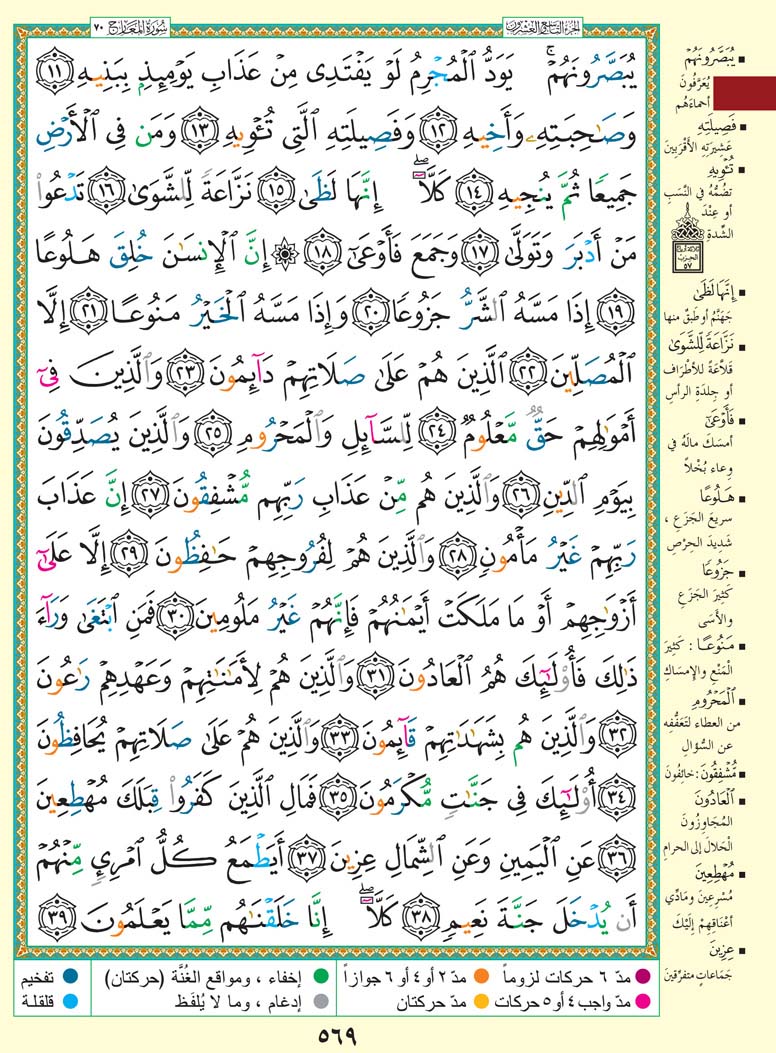 الجزء التاسع والعشرون
سُورَةُ المَعَارِج ٧٠
يُبَصَّرُونَهُمْ ۚ يَوَدُّ ٱلْمُجْرِمُ لَوْ يَفْتَدِى مِنْ عَذَابِ يَوْمِئِذٍۭ بِبَنِيهِ ﴿١١﴾
وَصَٰحِبَتِهِۦ وَأَخِيهِ ﴿١٢﴾ وَفَصِيلَتِهِ ٱلَّتِى تُـْٔوِيهِ ﴿١٣﴾ وَمَن فِى ٱلْأَرْضِ
جَمِيعًا ثُمَّ يُنجِيهِ ﴿١٤﴾ كَلَّآ ۖ إِنَّهَا لَظَىٰ ﴿١٥﴾ نَزَّاعَةً لِّلشَّوَىٰ ﴿١٦﴾ تَدْعُوا۟
مَنْ أَدْبَرَ وَتَوَلَّىٰ ﴿١٧﴾ وَجَمَعَ فَأَوْعَىٰٓ ﴿١٨﴾ ۞ إِنَّ ٱلْإِنسَٰنَ خُلِقَ هَلُوعًا
﴿١٩﴾ إِذَا مَسَّهُ ٱلشَّرُّ جَزُوعًا ﴿٢٠﴾ وَإِذَا مَسَّهُ ٱلْخَيْرُ مَنُوعًا ﴿٢١﴾ إِلَّا
ٱلْمُصَلِّينَ ﴿٢٢﴾ ٱلَّذِينَ هُمْ عَلَىٰ صَلَاتِهِمْ دَآئِمُونَ ﴿٢٣﴾ وَٱلَّذِينَ فِىٓ
أَمْوَٰلِهِمْ حَقٌّ مَّعْلُومٌ ﴿٢٤﴾ لِّلسَّآئِلِ وَٱلْمَحْرُومِ ﴿٢٥﴾ وَٱلَّذِينَ يُصَدِّقُونَ
بِيَوْمِ ٱلدِّينِ ﴿٢٦﴾ وَٱلَّذِينَ هُم مِّنْ عَذَابِ رَبِّهِم مُّشْفِقُونَ ﴿٢٧﴾ إِنَّ عَذَابَ
رَبِّهِمْ غَيْرُ مَأْمُونٍ ﴿٢٨﴾ وَٱلَّذِينَ هُمْ لِفُرُوجِهِمْ حَٰفِظُونَ ﴿٢٩﴾ إِلَّا عَلَىٰٓ
أَزْوَٰجِهِمْ أَوْ مَا مَلَكَتْ أَيْمَٰنُهُمْ فَإِنَّهُمْ غَيْرُ مَلُومِينَ ﴿٣٠﴾ فَمَنِ ٱبْتَغَىٰ وَرَآءَ
ذَٰلِكَ فَأُو۟لَٰٓئِكَ هُمُ ٱلْعَادُونَ ﴿٣١﴾ وَٱلَّذِينَ هُمْ لِأَمَٰنَٰتِهِمْ وَعَهْدِهِمْ رَٰعُونَ
﴿٣٢﴾ وَٱلَّذِينَ هُم بِشَهَٰدَٰتِهِمْ قَآئِمُونَ ﴿٣٣﴾ وَٱلَّذِينَ هُمْ عَلَىٰ صَلَاتِهِمْ يُحَافِظُونَ
﴿٣٤﴾ أُو۟لَٰٓئِكَ فِى جَنَّٰتٍ مُّكْرَمُونَ ﴿٣٥﴾ فَمَالِ ٱلَّذِينَ كَفَرُوا۟ قِبَلَكَ مُهْطِعِينَ
﴿٣٦﴾ عَنِ ٱلْيَمِينِ وَعَنِ ٱلشِّمَالِ عِزِينَ ﴿٣٧﴾ أَيَطْمَعُ كُلُّ ٱمْرِئٍ مِّنْهُمْ
أَن يُدْخَلَ جَنَّةَ نَعِيمٍ ﴿٣٨﴾ كَلَّآ ۖ إِنَّا خَلَقْنَٰهُم مِّمَّا يَعْلَمُونَ ﴿٣٩﴾
يُبَصَّرُونَهُمْ
يُعَرَّفُونَ
أحماءَهُم
فَصِيلَتِهِ
عَشِيرَتِهِ الأَقْرَبِينَ
تُـْٔوِيهِ
تضُمُّهُ في النَّسَبِ
أو عِنْدَ
الشِّدةِ
ثلاثة أرباع
الحزب
٥٧
إِنَّهَا لَظَىٰ
جَهَنَّمُ أو طَبَقٌ منها
نَزَّاعَةً لِّلشَّوَىٰ
قَلاَّعَةً للأَطْرَاف
أو جِلدَةِ الرأسِ
فَأَوْعَىٰ
أمسَكَ مالَهُ في
وِعاء بُخْلاً
هَلُوعًا
سريعَ الجَزَعِ ،
شَدِيدَ الحِرْصِ
جَزُوعًا
كَثِيرَ الجَزَعِ
والأَسَى
مَنُوعًا : كَثِيرَ
المَنْعِ والإِمسَاكِ
ٱلْمَحْرُومِ
من العطاء لتَعَفُّفِه
عن السُّؤالِ
مُّشْفِقُونَ : خائِفُونَ
ٱلْعَادُونَ
المُجَاوِزُونَ
الحَلالَ إلى الحرامِ
مُهْطِعِينَ
مُسْرِعِينَ ومَادِّي
أعْنَاقِهِمْ إِلَيْكَ
عِزِينَ
جَمَاعَاتٍ متفرِّقينَ
مدّ ٦ حركات لزوماً
مدّ ٢ أو ٤ أو ٦ جوازاً
إخفاء ، ومواقع الغُنَّة (حركتان)
تفخيم
مدّ واجب ٤ أو ٥ حركات
مدّ حركتان
إدغام ، وما لا يُلفَظ
قلقلة
٥٦٩